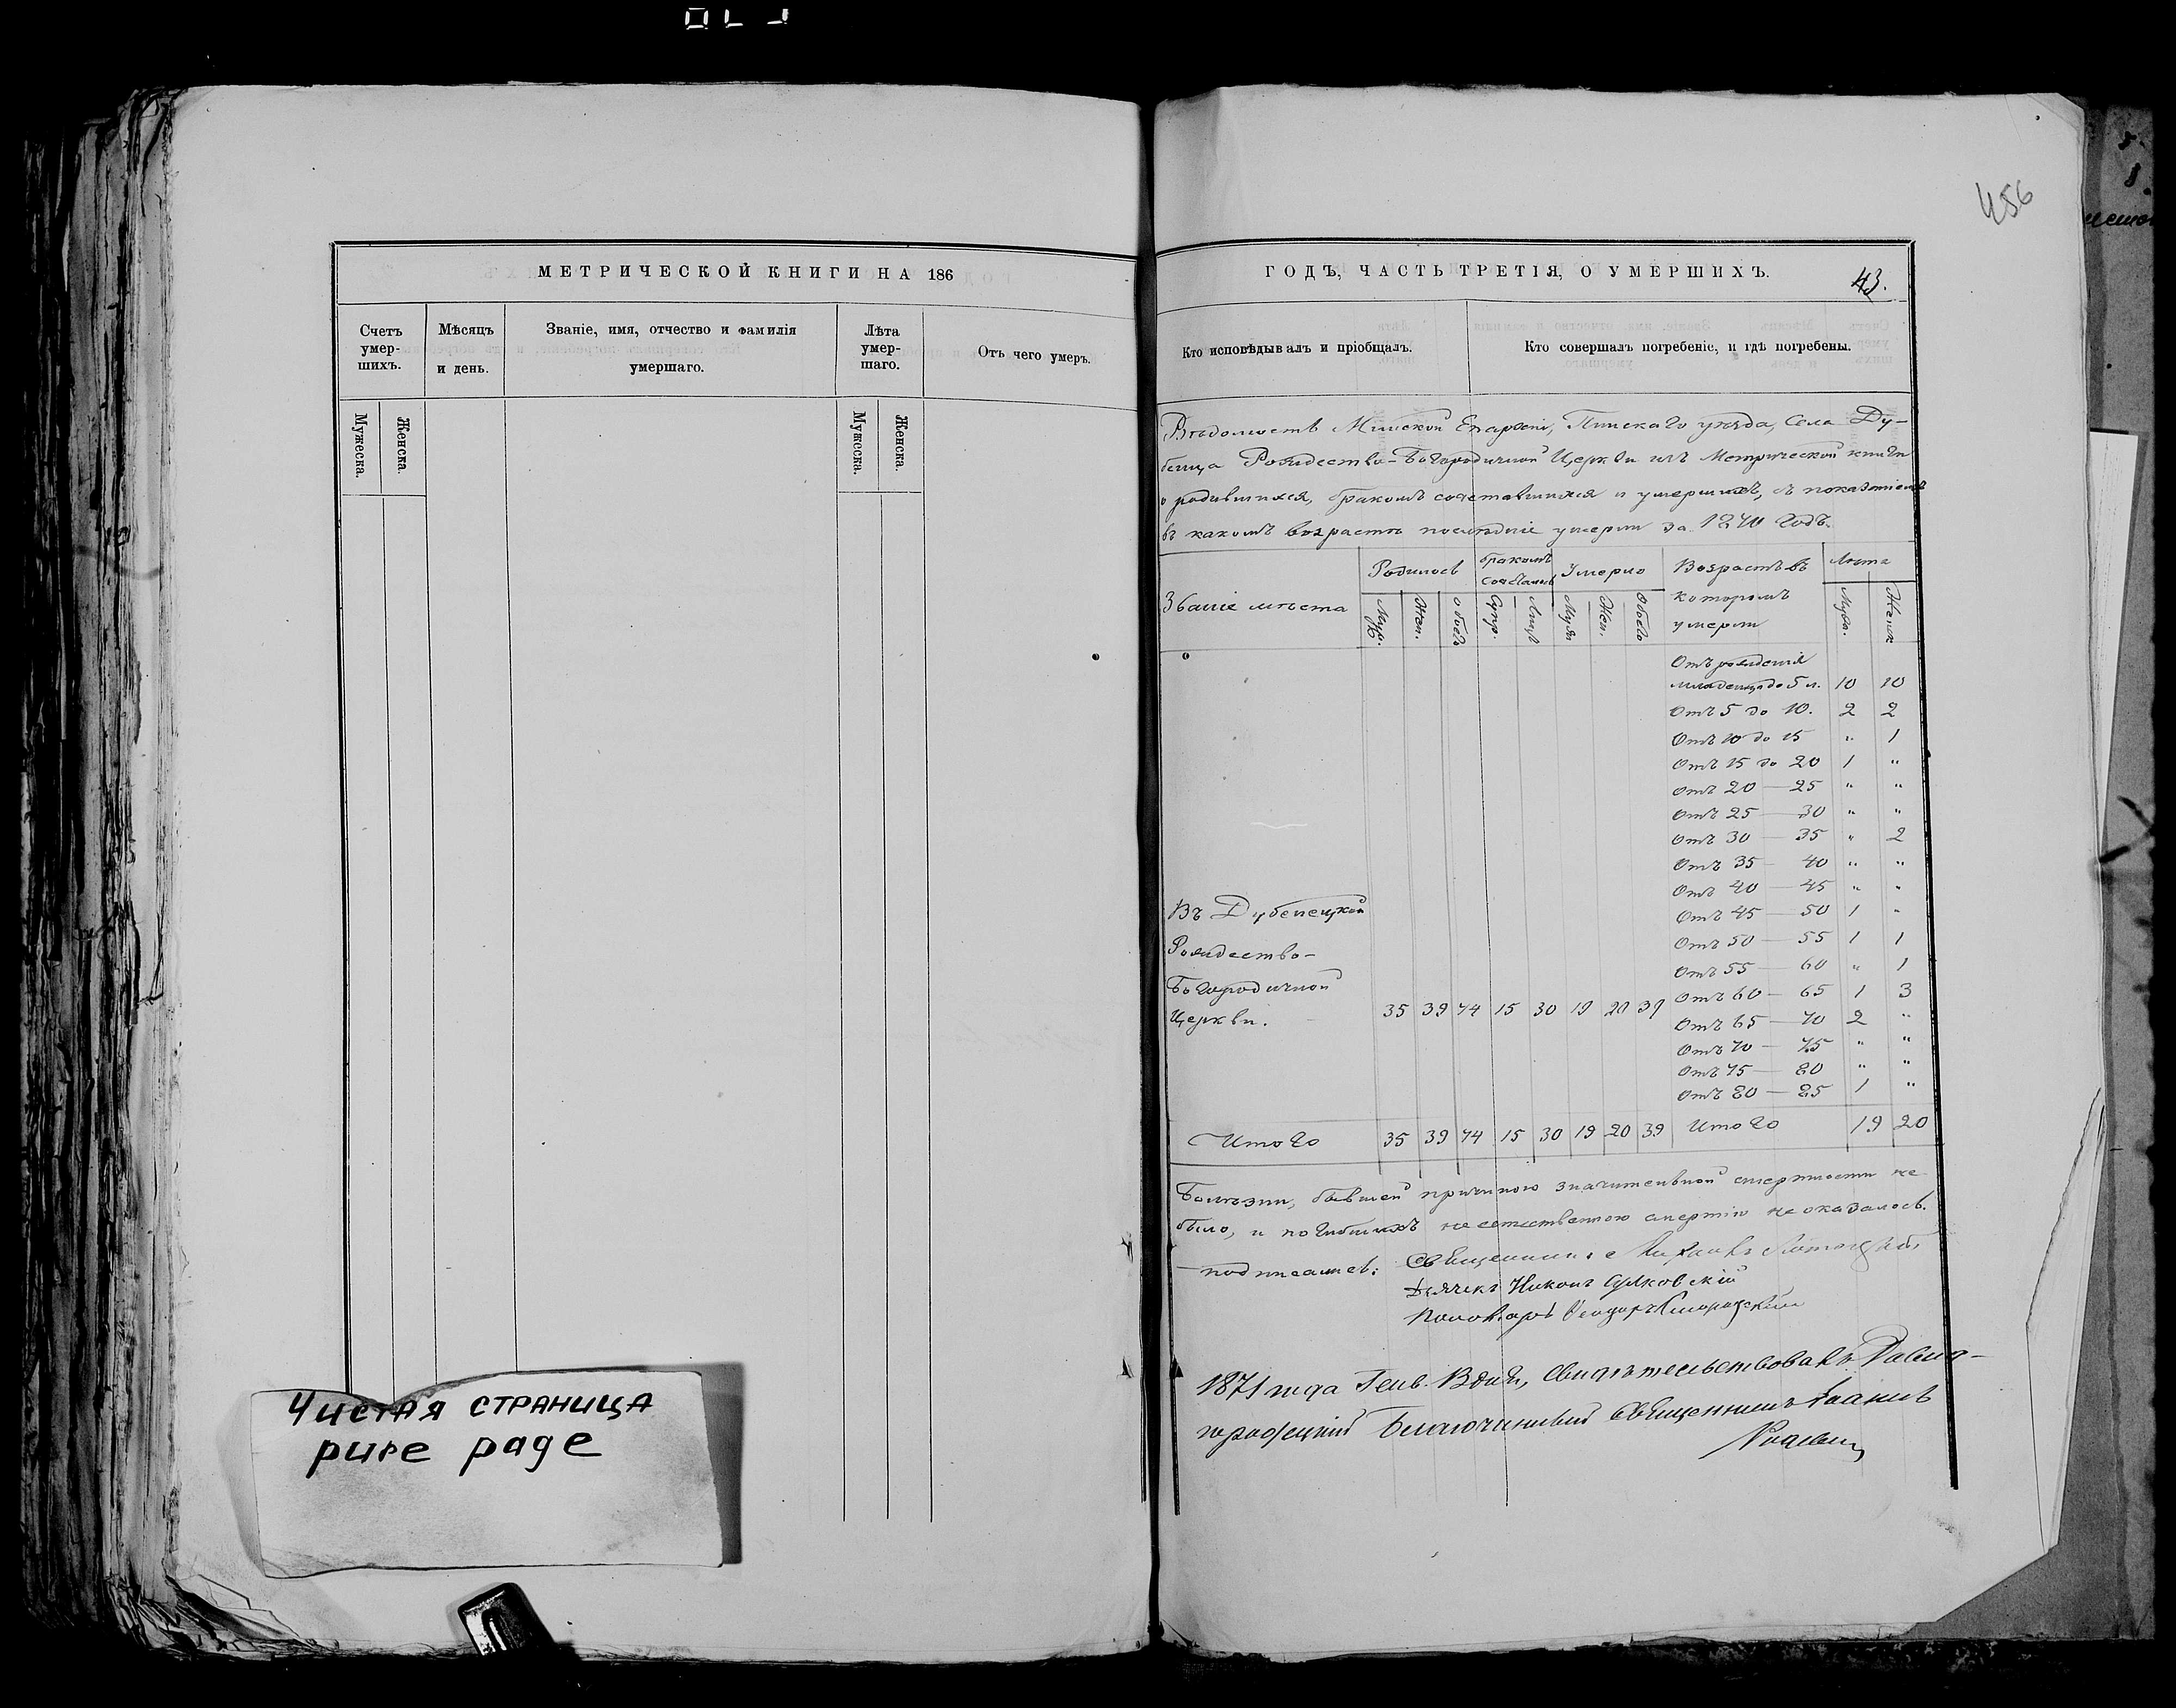 456
МЕТРИЧЕСКОЙ КНИГИ НА 186
Счетъ умер-шихъ.
Мѣсяцъ и день.
Званіе, имя, отчество и фамилія умершаго.
Лѣта умер-шаго.
Отъ чего умеръ.
Мужеска.
Женска.
Мужеска.
Женска.
Чистая страница
pure page
ГОДЪ, ЧАСТЬ ТРЕТІЯ, О УМЕРШИХЪ.
43.
Кто исповѣдывалъ и пріобщалъ.
Кто совершалъ погребеніе, и гдѣ погребены.
Вѣдомость Минской Епархіи, Пинскаго уѣзда, Села Ду-
бенца Рождество-Богородичной Церкви изъ Метрической книги
о родившихся, бракомъ сочетавшихся и умершихъ, съ показаніемъ
въ какомъ возрастѣ послѣдніе умерли за 1870 годъ.
Званіе мѣста
Родилось
бракомъ
Умерло
Возрастъ въ которомъ умерли
Лѣта
Муж.
Жен.
обоего
Супр.
Лицъ
Муж
Жен.
Обоего
Муж.
Женск
Отъ рожденія
младенца до 5 л. 10 10
Отъ 5 до 10. 2 2
Отъ 10 до 15 " 1
Отъ 15 до 20 1 "
Отъ 20 — 25 " "
Отъ 25 — 30 " "
Отъ 30 — 35 " 2
Отъ 35 — 40 " "
Отъ 40 — 45 " "
Отъ 45 — 50 1 "
Отъ 50 — 55 1 1
Отъ 55 — 60 " 1
Отъ 60 — 65 1 3
Отъ 65 — 70 2 "
Отъ 70 — 75 " "
Отъ 75 — 80 " "
Отъ 80 — 85 1 "
Въ Дубенецкой
Рождество-
Богородичной
Церкви. 35 39 74 15 30 19 20 39
Итого 35 39 74 15 30 19 20 39 Итого 19 20
Болѣзни, бывшей причиною значительной смертности не
было, и погибшихъ неестественною смертію не оказалось.
подписались: Священникъ Михаилъ
Дьячекъ Никонъ
Пономарь Ѳеодоръ
1871 года Генв. дня, свидѣтельствовалъ Давид-
городецкій Благочинный Священникъ Іоаннъ